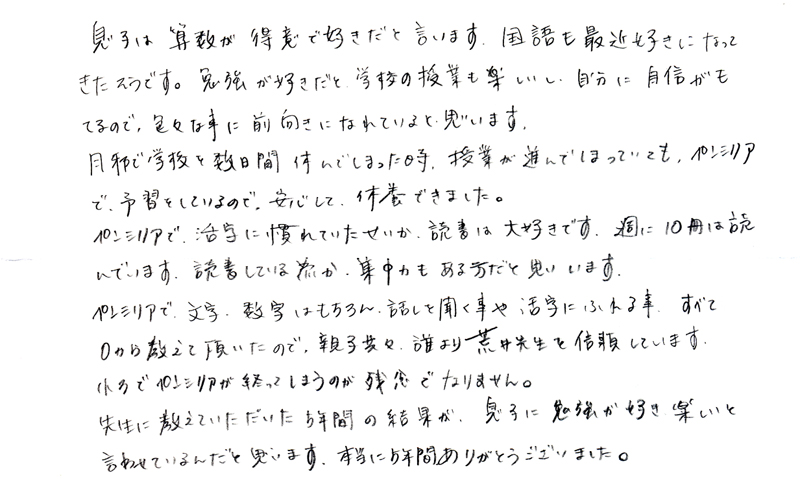 息子は算数が得意で好きだと言います。国語も最近好きになって
きたそうです。勉強が好きだと学校の授業も楽しいし、自分に自信がも
てるので、色々な事に前向きになれていると思います。
風邪で学校を数日間休んでしまった時、授業が進んでしまっていても、ペンシリア
で、予習をしているので、安心して、休養できました。
ペンシリアで、活字に慣れていたせいか、読書は大好きです。週に10冊は読
んでいます。読書している流か、集中力もある方だと思います。
ペンシリアで、文字、数字はもちろん、話しを聞く事や活字にふれる事、すべて
0から教えて頂いたので、親子共々、誰より荒井先生を信頼しています。
小3でペンシリアが終ってしまうのが残念でなりません。
先生に教えていただいた5年間の結果が、息子に勉強が好き、楽しいと
言わせているんだと思います。本当に5年間ありがとうございました。